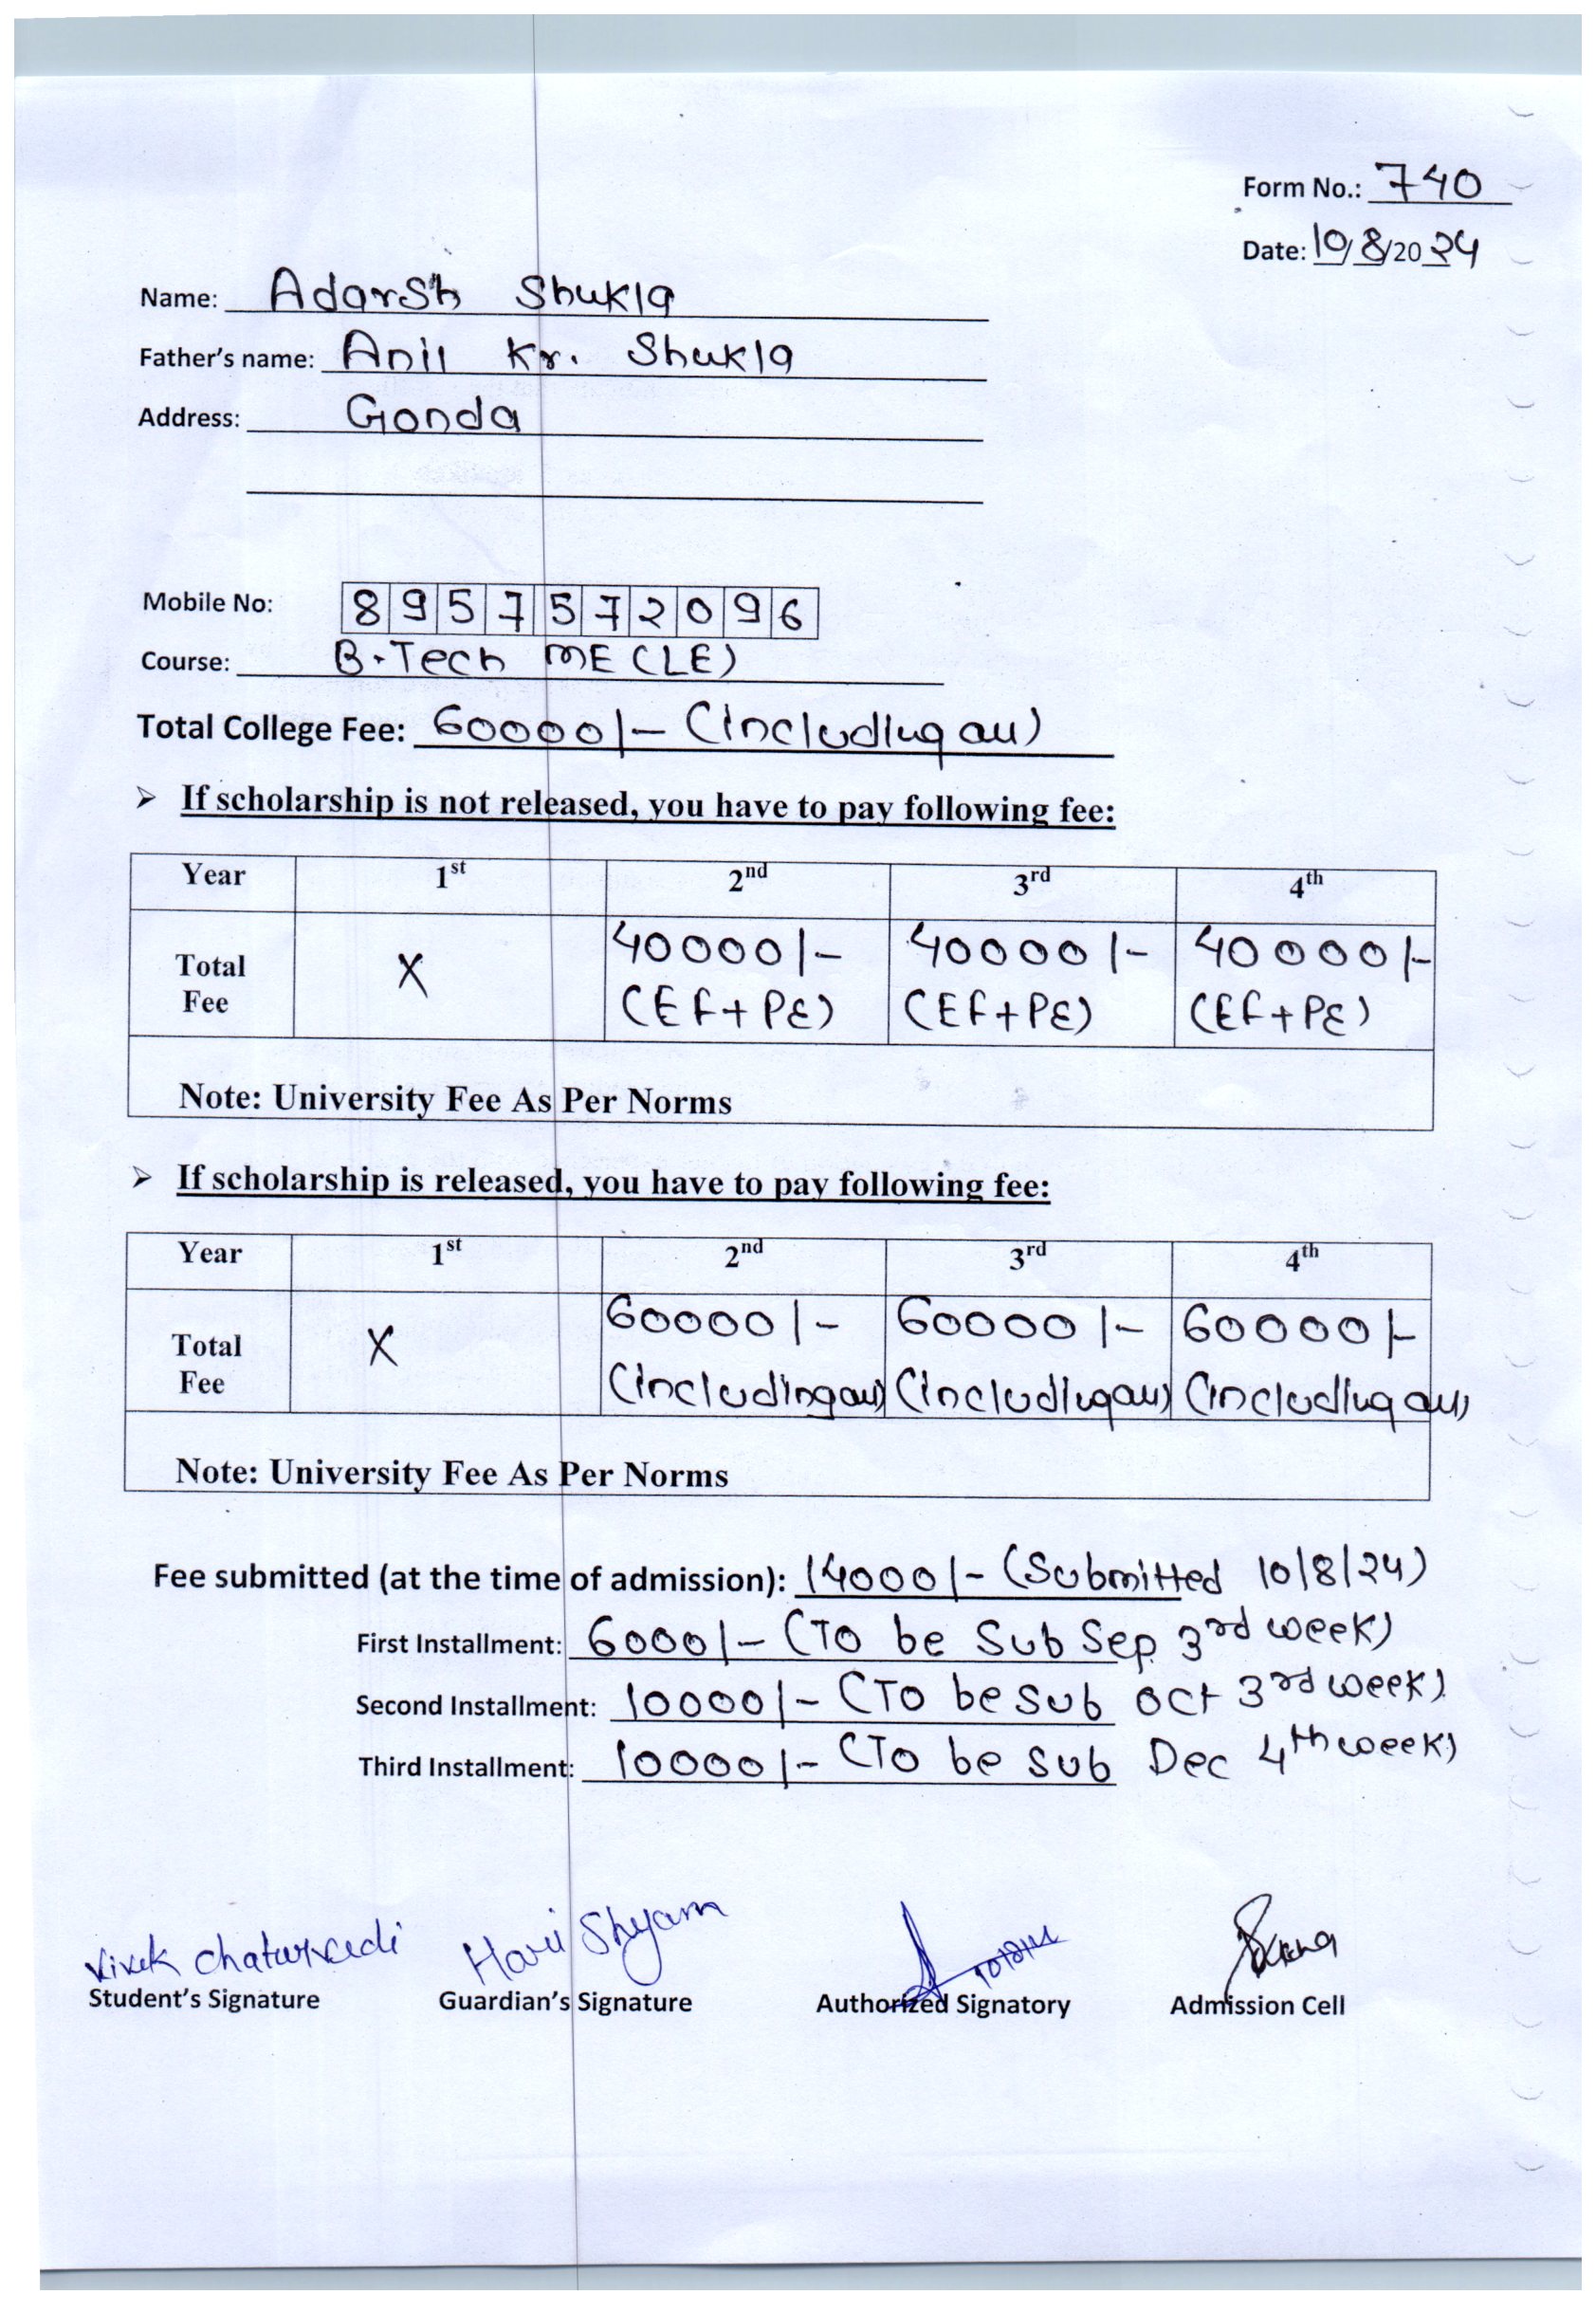 Form No.: 740
Date: 10/8/2024
Name: Adarsh Shukla
Father's name: Anil Kr. Shukla
Address: Gonda
Mobile No: 8957572096
Course: B.Tech ME (LE)
Total College Fee: 60000/- (Including all)
➢ If scholarship is not released, you have to pay following fee:
Year 1st 2nd 3rd 4th
Total Fee X 40000/- (EF+PE) 40000/- (EF+PE) 40000/- (EF+PE)
Note: University Fee As Per Norms
➢ If scholarship is released, you have to pay following fee:
Year 1st 2nd 3rd 4th
Total Fee X 60000/- (Including all) 60000/- (Including all) 60000/- (Including all)
Note: University Fee As Per Norms
Fee submitted (at the time of admission): 14000/- (Submitted 10/8/24)
First Installment: 6000/- (To be Sub Sep 3rd week)
Second Installment: 10000/- (To be Sub Oct 3rd week)
Third Installment: 10000/- (To be Sub Dec 4th week)
Vivek Chaturvedi Hari Shyam
Student's Signature Guardian's Signature Authorized Signatory Admission Cell